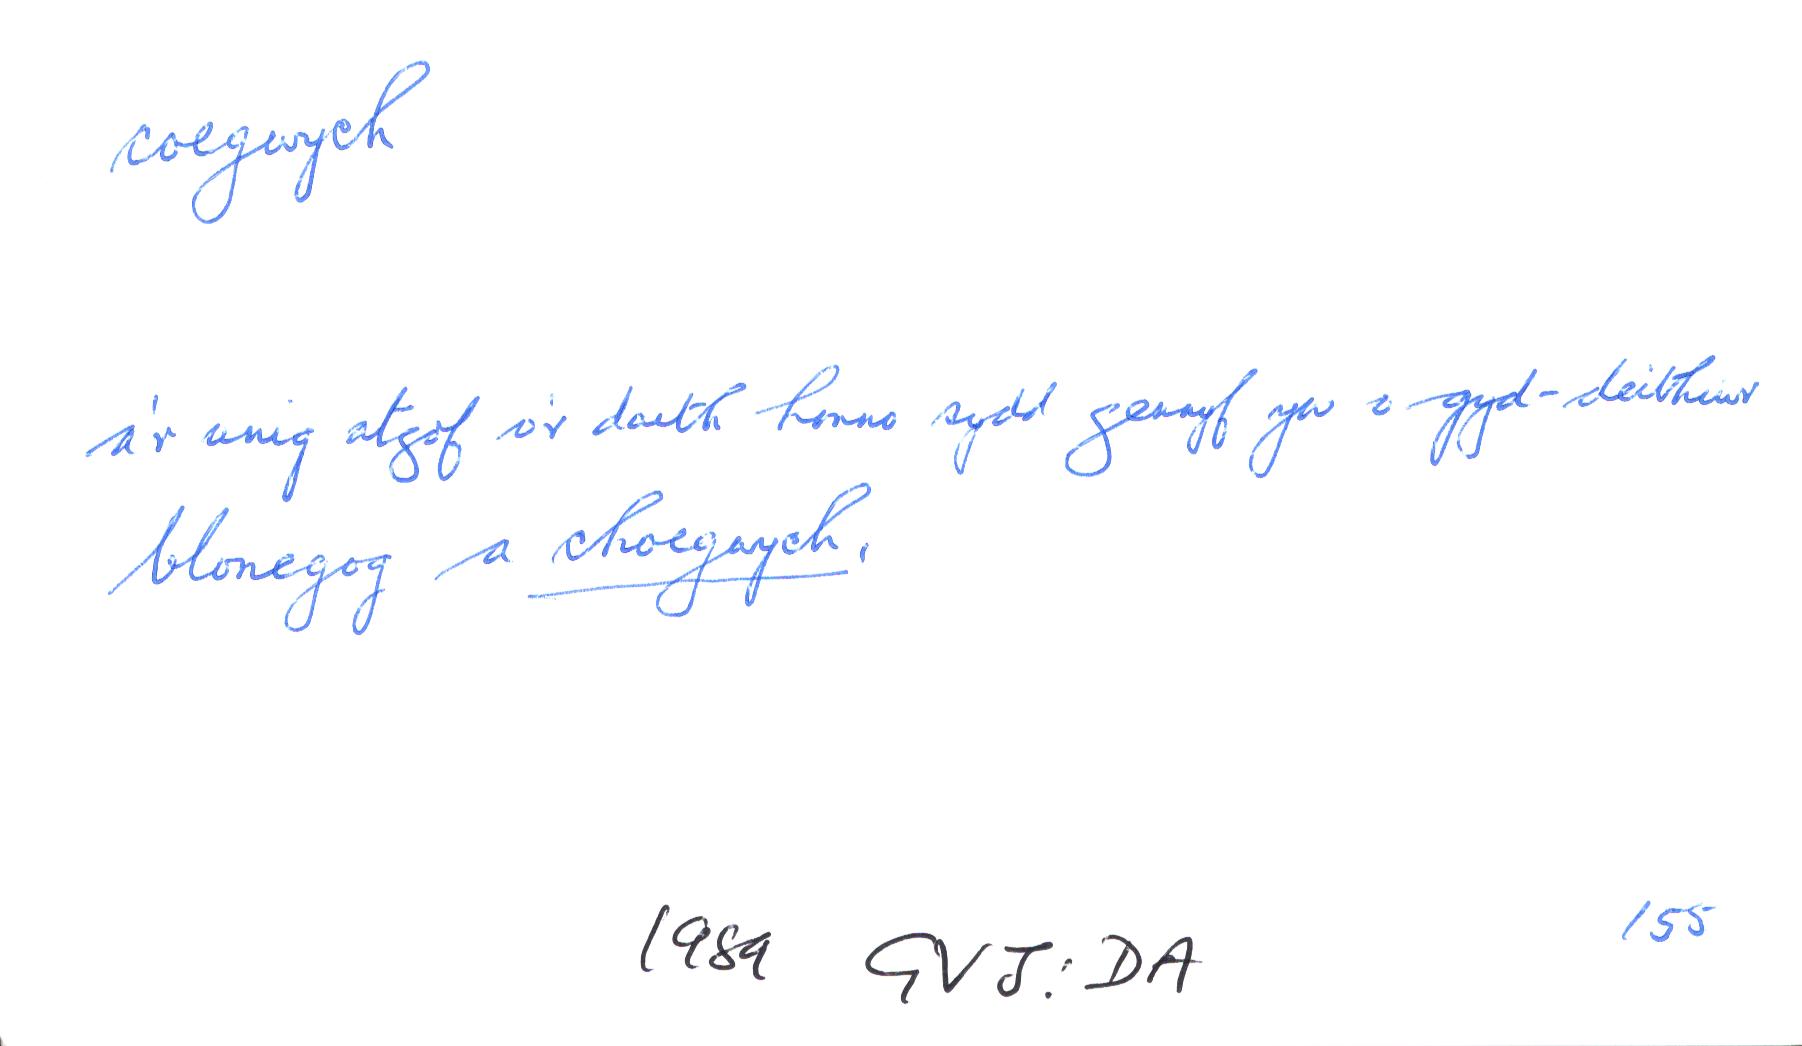 coegwych
a'r unig atgof o'r daith honno sydd gennyf yw o gyd-deithiwr
blonegog a choegwych.
1989 GVJ: DA
155